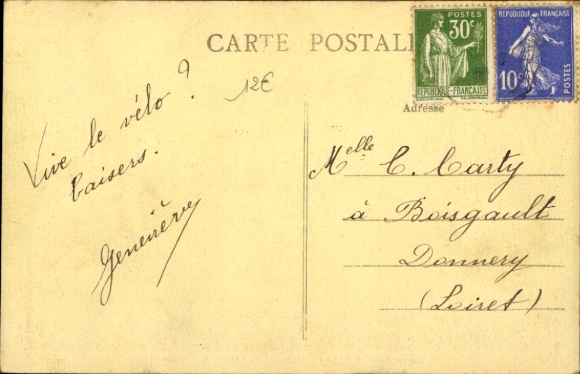 CARTE POSTALE
POSTES
30c
REPUBLIQUE-FRANÇAISE
REPUBLIQUE FRANÇAISE
10c
12€
Adresse
Vive le vélo ?
baisers.
Geneviève
Melle C. Carty
à Boisgault
Donnery
(Loiret)